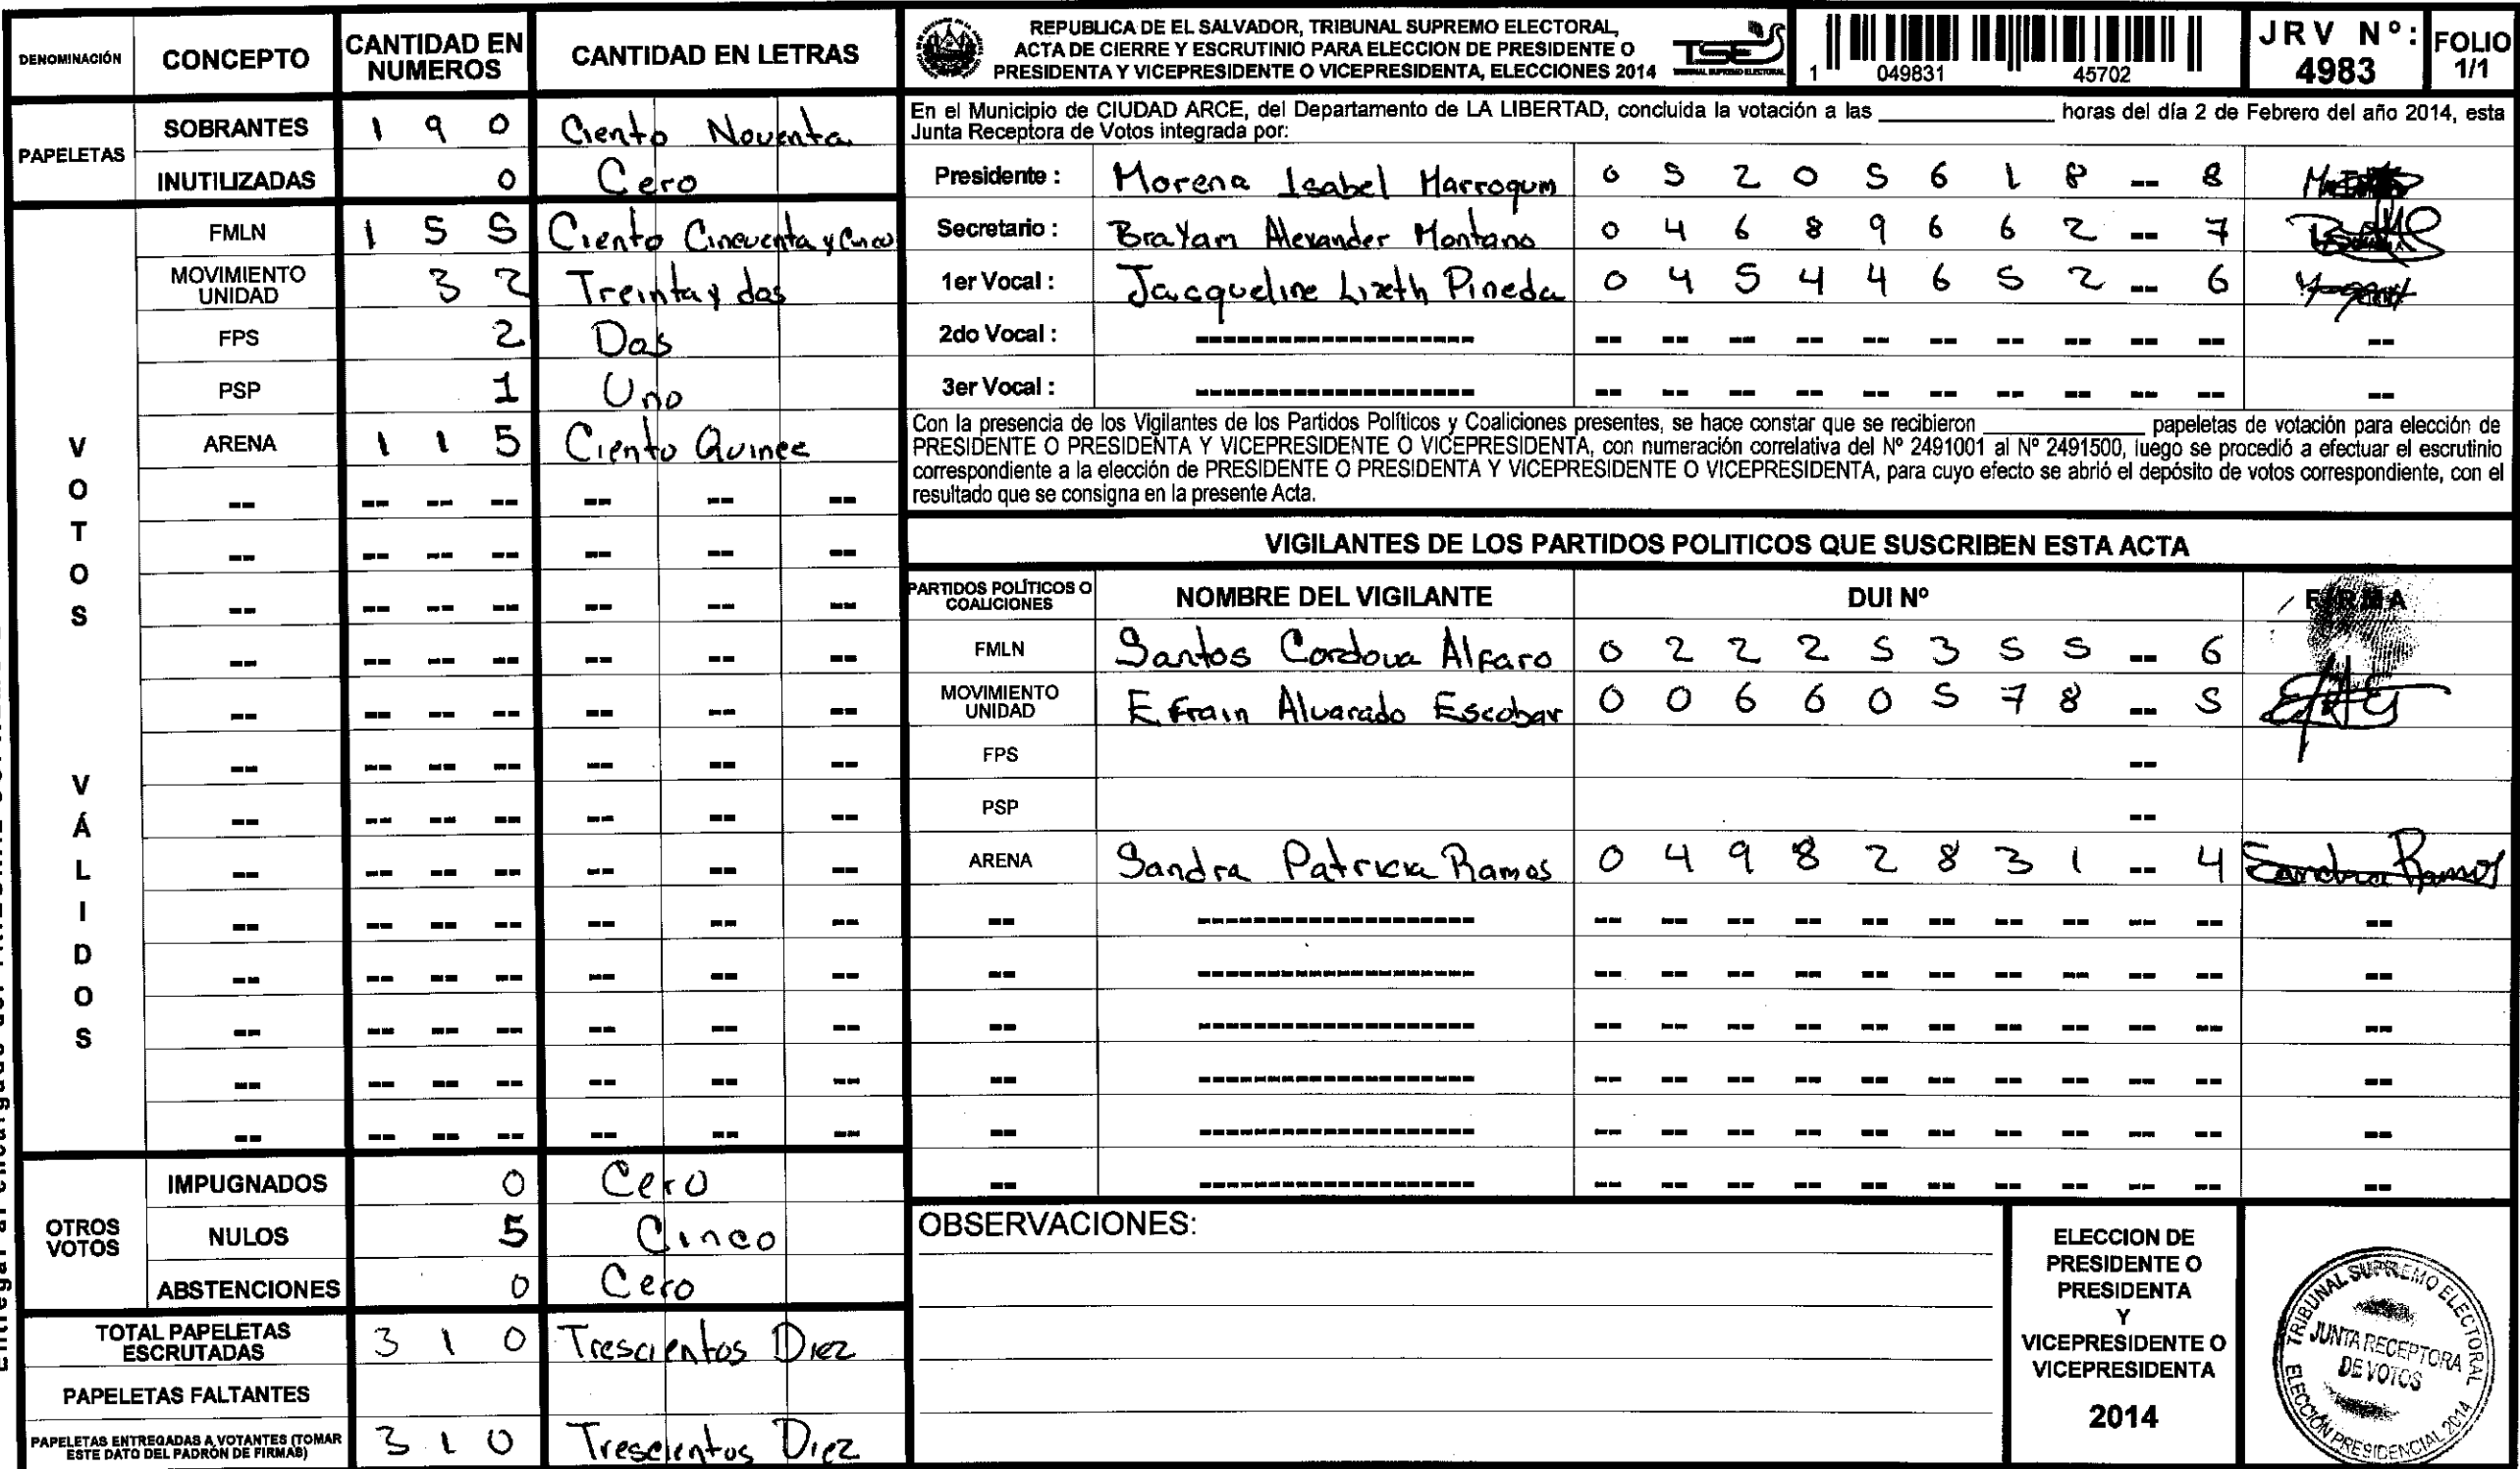 DENOMINACIÓN CONCEPTO CANTIDAD EN NUMEROS CANTIDAD EN LETRAS
PAPELETAS
SOBRANTES 1 9 0 Ciento Noventa
INUTILIZADAS 0 Cero
VOTOS VÁLIDOS
FMLN 1 5 5 Ciento Cincuenta y Cinco
MOVIMIENTO UNIDAD 3 2 Treinta y dos
FPS 2 Dos
PSP 1 Uno
ARENA 1 1 5 Ciento Quince
OTROS VOTOS
IMPUGNADOS 0 Cero
NULOS 5 Cinco
ABSTENCIONES 0 Cero
TOTAL PAPELETAS ESCRUTADAS 3 1 0 Trescientos Diez
PAPELETAS FALTANTES
PAPELETAS ENTREGADAS A VOTANTES (TOMAR ESTE DATO DEL PADRÓN DE FIRMAS) 3 1 0 Trescientos Diez
REPUBLICA DE EL SALVADOR, TRIBUNAL SUPREMO ELECTORAL,
ACTA DE CIERRE Y ESCRUTINIO PARA ELECCION DE PRESIDENTE O
PRESIDENTA Y VICEPRESIDENTE O VICEPRESIDENTA, ELECCIONES 2014
TSE
TRIBUNAL SUPREMO ELECTORAL
1 049831 45702
JRV Nº: 4983
FOLIO 1/1
En el Municipio de CIUDAD ARCE, del Departamento de LA LIBERTAD, concluida la votación a las ____________ horas del día 2 de Febrero del año 2014, esta
Junta Receptora de Votos integrada por:
Presidente : Morena Isabel Marroqum 0 5 2 0 5 6 1 8 -- 8
Secretario : Brayam Alexander Montano 0 4 6 8 9 6 6 2 -- 7
1er Vocal : Jacqueline Lizeth Pineda 0 4 5 4 4 6 5 2 -- 6
2do Vocal :
3er Vocal :
Con la presencia de los Vigilantes de los Partidos Políticos y Coaliciones presentes, se hace constar que se recibieron ____________ papeletas de votación para elección de
PRESIDENTE O PRESIDENTA Y VICEPRESIDENTE O VICEPRESIDENTA, con numeración correlativa del Nº 2491001 al Nº 2491500, luego se procedió a efectuar el escrutinio
correspondiente a la elección de PRESIDENTE O PRESIDENTA Y VICEPRESIDENTE O VICEPRESIDENTA, para cuyo efecto se abrió el depósito de votos correspondiente, con el
resultado que se consigna en la presente Acta.
VIGILANTES DE LOS PARTIDOS POLITICOS QUE SUSCRIBEN ESTA ACTA
PARTIDOS POLÍTICOS O COALICIONES NOMBRE DEL VIGILANTE DUI Nº FIRMA
FMLN Santos Cordova Alfaro 0 2 2 2 5 3 5 5 -- 6
MOVIMIENTO UNIDAD Efrain Alvarado Escobar 0 0 6 6 0 5 7 8 -- 5
FPS --
PSP --
ARENA Sandra Patricia Ramos 0 4 9 8 2 8 3 1 -- 4 Sandra Ramos
OBSERVACIONES:
ELECCION DE
PRESIDENTE O
PRESIDENTA
Y
VICEPRESIDENTE O
VICEPRESIDENTA
2014
TRIBUNAL SUPREMO ELECTORAL
JUNTA RECEPTORA
DE VOTOS
ELECCIÓN PRESIDENCIAL 2014